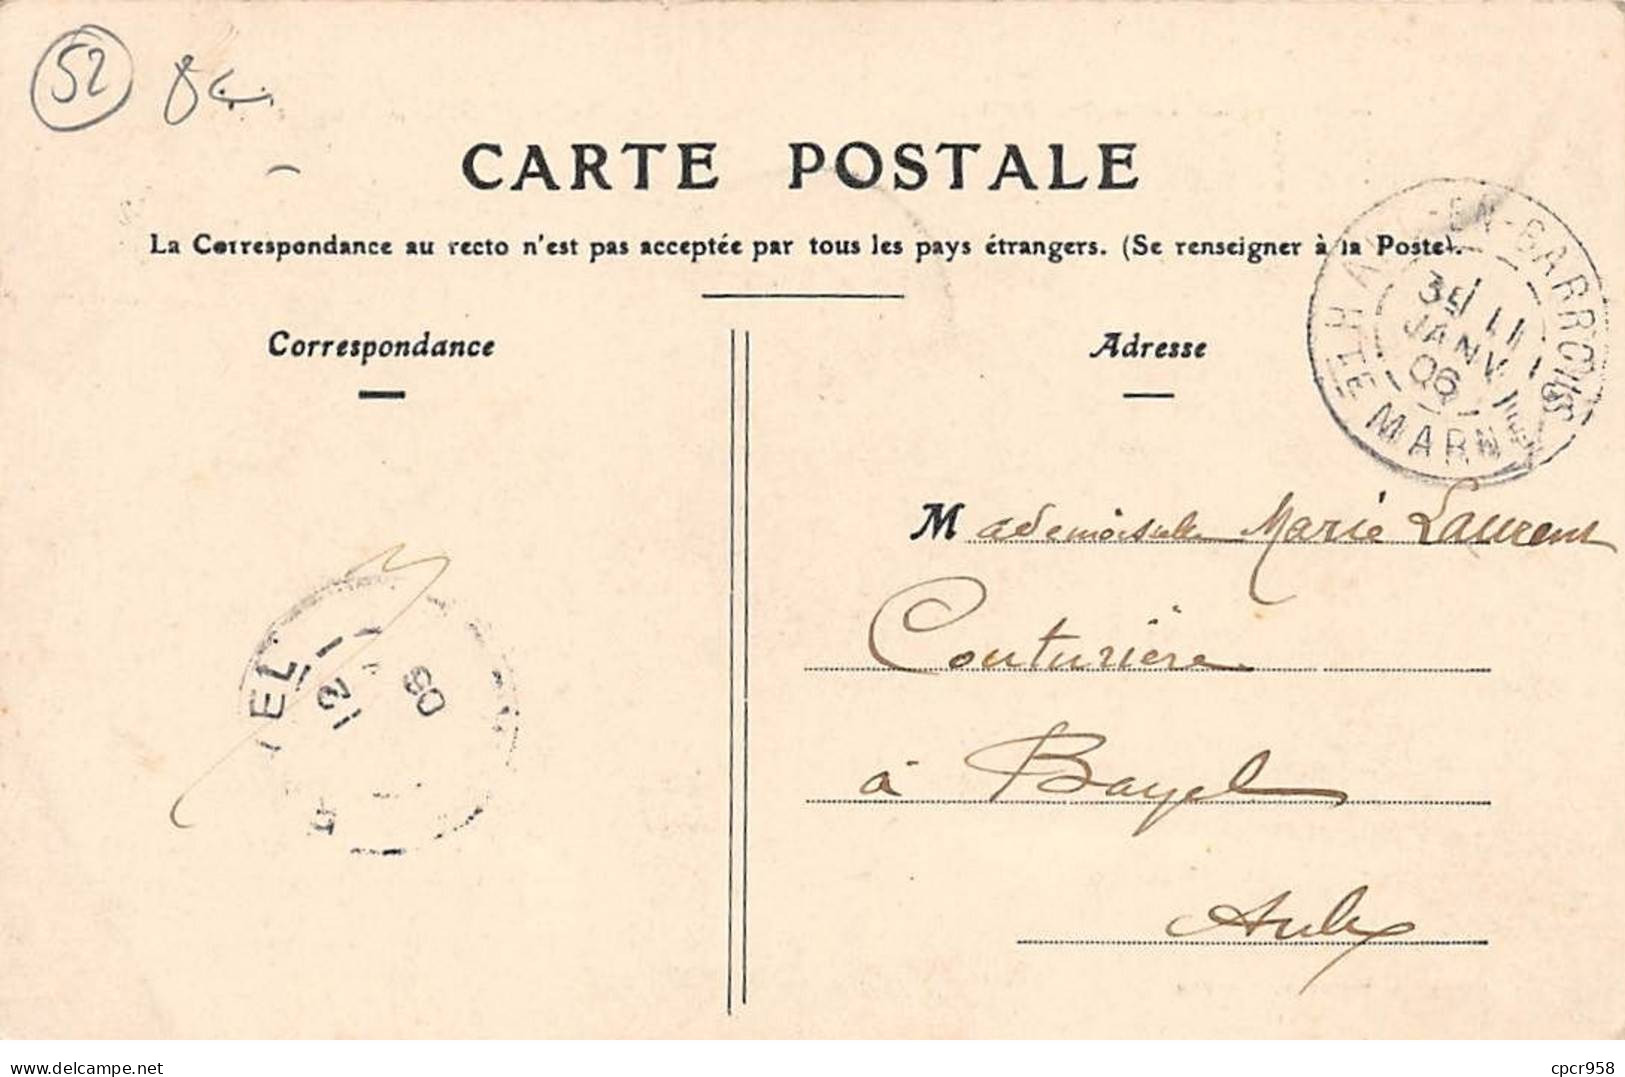 52
CARTE POSTALE
La Correspondance au recto n'est pas acceptée par tous les pays étrangers. (Se renseigner à la Poste).
Correspondance
Adresse
EN-BARROIS
3E 11
JANV
06
HTE MARNE
Mademoiselle Marie Laurent
Couturière
à Bayel
Aube
YEL
12
06
delcampe.net
cpcr958